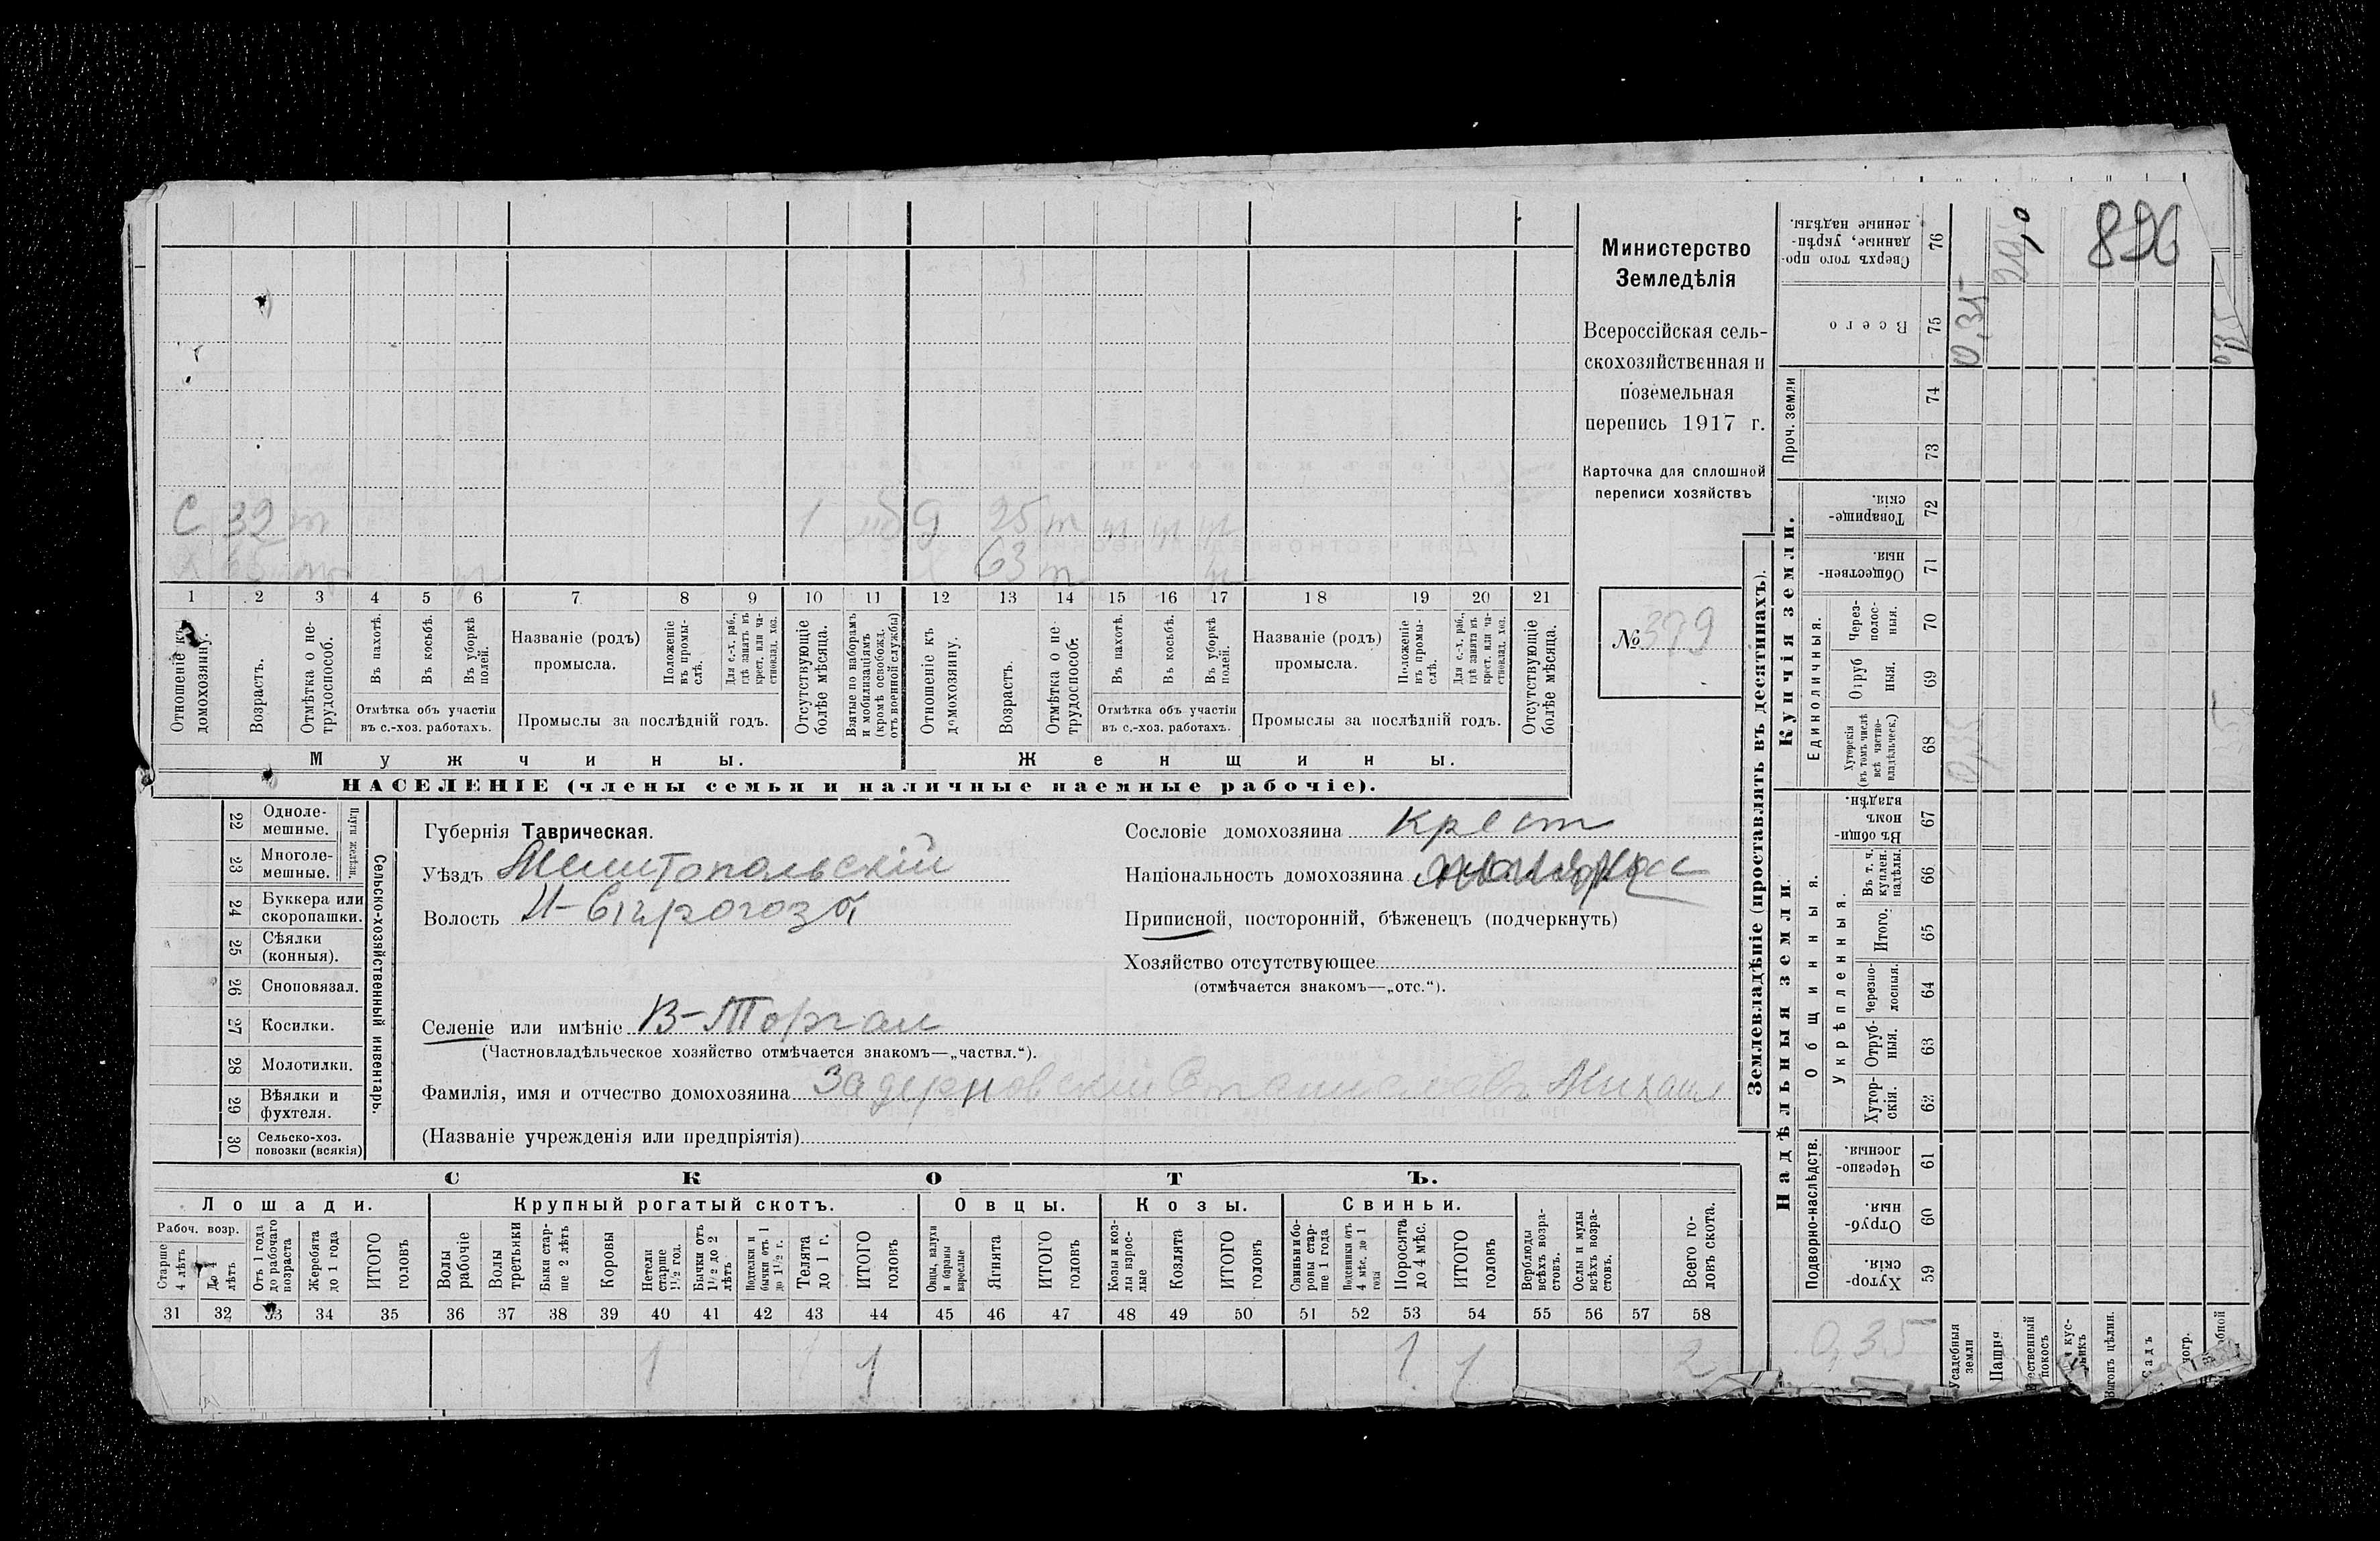 Министерство
Земледѣлія
Всероссійская сель-
скохозяйственная и
поземельная
перепись 1917 г.
Карточка для сплошной
переписи хозяйствъ
№ 379
896
С 32 т 1 25 т
63 т
1 2 3 4 5 6 7 8 9 10 11 12 13 14 15 16 17 18 19 20 21
Отношеніе къ домохозяину.
Возрастъ.
Отмѣтка о не-трудоспособ.
Въ пахотѣ.
Въ косьбѣ.
Въ уборкѣ полей.
Отмѣтка объ участіи
въ с.-хоз. работахъ.
Названіе (родъ)
промысла.
Положеніе въ промы-слѣ.
Для с.-х. раб., гдѣ занятъ въ крест. или ча-стновлад. хоз.
Промыслы за послѣдній годъ.
Отсутствующіе болѣе мѣсяца.
Взятые по наборамъ и мобилизаціямъ (кромѣ освобожд. отъ военной службы)
Отношеніе къ домохозяину.
Возрастъ.
Отмѣтка о не-трудоспособ.
Въ пахотѣ.
Въ косьбѣ.
Въ уборкѣ полей.
Отмѣтка объ участіи
въ с.-хоз. работахъ.
Названіе (родъ)
промысла.
Положеніе въ промы-слѣ.
Для с.-х. раб., гдѣ занята въ крест. или ча-стновлад. хоз.
Промыслы за послѣдній годъ.
Отсутствующіе болѣе мѣсяца.
Мужчины.
Женщины.
НАСЕЛЕНІЕ (члены семьи и наличные наемные рабочіе).
22 Одноле-мешные.
23 Многоле-мешные.
Плуги желѣзн.
24 Буккера или скоропашки.
25 Сѣялки (конныя).
26 Сноповязал.
27 Косилки.
28 Молотилки.
29 Вѣялки и фухтеля.
30 Сельско-хоз. повозки (всякія)
Сельско-хозяйственный инвентарь.
Губернія Таврическая.
Уѣздъ Мелитопольскій
Волость Н-Сѣрогозск
Сословіе домохозяина Крест
Національность домохозяина
Приписной, посторонній, бѣженецъ (подчеркнуть)
Хозяйство отсутствующее
(отмѣчается знакомъ—„отс.“).
Селеніе или имѣніе В-Торгаи
(Частновладѣльческое хозяйство отмѣчается знакомъ—„частвл.“).
Фамилія, имя и отчество домохозяина Задерновскій Станиславъ Михаил
(Названіе учрежденія или предпріятія)
СКОТЪ.
Лошади. Крупный рогатый скотъ. Овцы. Козы. Свиньи.
Рабоч. возр.
Старше 4 лѣтъ
До 4 лѣтъ
Отъ 1 года до рабочаго возраста
Жеребята до 1 года
ИТОГО головъ
Волы рабочіе
Волы третьяки
Быки стар-ше 2 лѣтъ
Коровы
Нетели старше 1 1/2 год.
Бычки отъ 1 1/2 до 2 лѣтъ
Подтелки и бычки отъ 1 до 1 1/2 г.
Телята до 1 г.
ИТОГО головъ
Овцы, валухи и бараны взрослые
Ягнята
ИТОГО головъ
Козы и коз-лы взрос-лые
Козлята
ИТОГО головъ
Свиньи и бо-ровы стар-ше 1 года
Подсвинки отъ 4 мѣс. до 1 года
Поросята до 4 мѣс.
ИТОГО головъ
Верблюды всѣхъ возра-стовъ.
Ослы и мулы всѣхъ возра-стовъ.
Всего го-ловъ скота.
31 32 33 34 35 36 37 38 39 40 41 42 43 44 45 46 47 48 49 50 51 52 53 54 55 56 57 58
1 1 1 1 2
Землевладѣніе (проставлять въ десятинахъ).
Надѣльныя земли.
Купчія земли.
Проч. земли
Подворно-наслѣдств.
Общинныя.
Укрѣпленныя.
Единоличныя.
Хутор-скія. 59
Отруб-ныя. 60
Черезпо-лосныя. 61
Хутор-скія. 62
Отруб-ныя. 63
Черезпо-лосныя. 64
Итого. 65
Въ т. ч. куплен. надѣлы. 66
Въ общи-номъ владѣн. 67
Хуторскія (въ томъ числѣ всѣ частно-владѣльческ.) 68
Отруб-ныя. 69
Через-полос-ныя. 70
Обществен-ныя. 71
Товарище-скія. 72
73
74
Всего 75
Сверхъ того про-данные, укрѣп-ленные надѣлы. 76
Усадебныя земли
Пашня
Выгонъ цѣлин.
Садъ
0,35
0,35
0,35